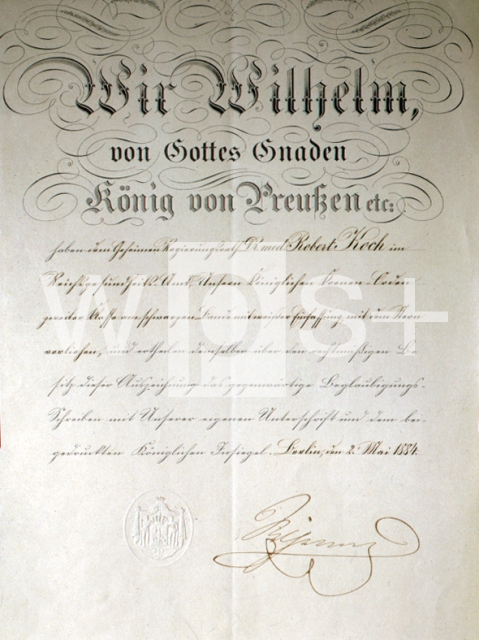 Wir Wilhelm,
von Gottes Gnaden
König von Preußen etc:
haben dem Geheimen Regierungsrath Dr. med. Robert Koch im
Reichsgesundheits-Amt Unsern Königlichen Kronen-Orden
zweiter Klasse am schwarzen Bande mit weißer Einfassung mit dem Stern
verliehen, und ertheilen demselben über den rechtmäßigen Be-
sitz dieser Auszeichnung das gegenwärtige Beglaubigungs-
Schreiben mit Unserer eigenen Unterschrift und dem bei-
gedruckten Königlichen Insiegel. Berlin, den 2. Mai 1884.